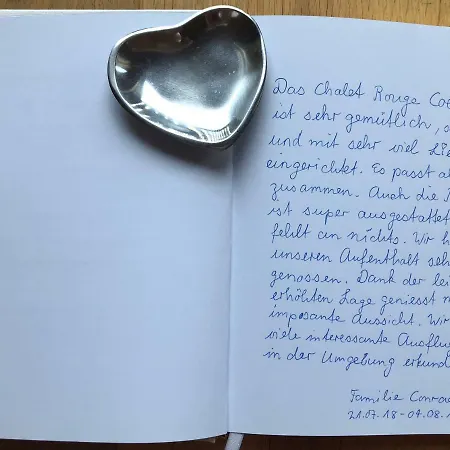 Das Chalet Rouge Coe
ist sehr gemütlich,
und mit sehr viel Lie
eingerichtet. Es passt al
zusammen. Auch die
ist super ausgestattet
fehlt an nichts. Wir h
unseren Aufenthalt seh
genossen. Dank der lei
erhöhten Lage geniesst m
imposante Aussicht. Wir
viele interessante Ausflu
in der Umgebung erkund
Familie Conra
21.07.18-04.08.1